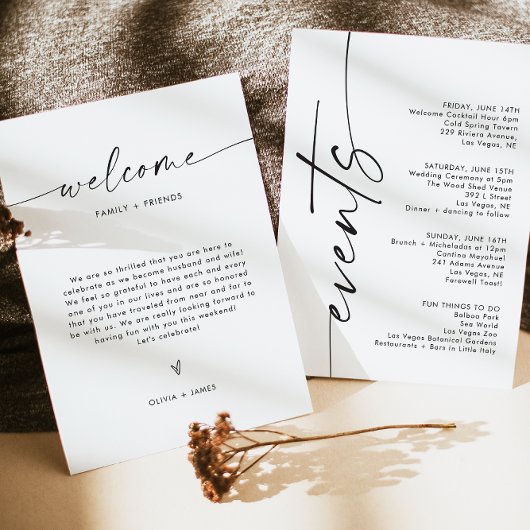 welcome
FAMILY + FRIENDS
We are so thrilled that you are here to
celebrate as we become husband and wife!
We feel so grateful to have each and every
one of you in our lives and are so honored
that you have traveled from near and far to
be with us. We are really looking forward to
having fun with you this weekend!
Let's celebrate!
OLIVIA + JAMES
events
FRIDAY, JUNE 14TH
Welcome Cocktail Hour 6pm
Cold Spring Tavern
229 Riviera Avenue,
Las Vegas, NE
SATURDAY, JUNE 15TH
Wedding Ceremony at 5pm
The Wood Shed Venue
392 L Street
Las Vegas, NE
Dinner + dancing to follow
SUNDAY, JUNE 16TH
Brunch + Micheladas at 12pm
Cantina Mayahuel
241 Adams Avenue
Las Vegas, NE
Farewell Toast!
FUN THINGS TO DO
Balboa Park
Sea World
Las Vegas Zoo
Las Vegas Botanical Gardens
Restaurants + Bars in Little Italy